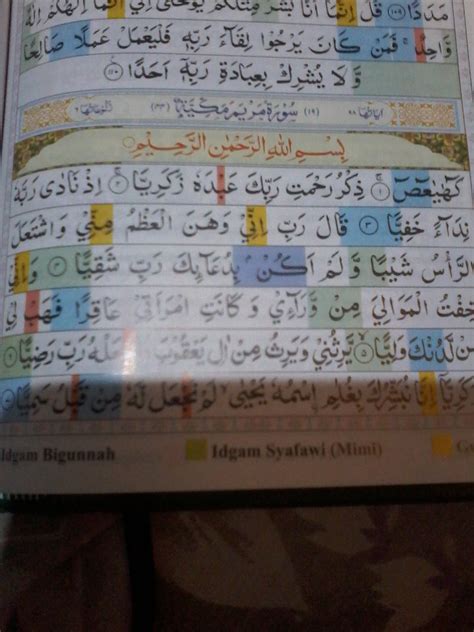 مَدَدًا ۝١٠٩ قُلْ اِنَّمَآ اَنَا۠ بَشَرٌ مِّثْلُكُمْ يُوْحٰٓى اِلَيَّ اَنَّمَآ اِلٰهُكُمْ اِلٰهٌ
وَّاحِدٌ ۚ فَمَنْ كَانَ يَرْجُوْا لِقَاۤءَ رَبِّهٖ فَلْيَعْمَلْ عَمَلًا صَالِحًا
وَّلَا يُشْرِكْ بِعِبَادَةِ رَبِّهٖٓ اَحَدًا ۝١١٠
اٰيَاتُهَا ٩٨ (١٩) سُوْرَةُ مَرْيَمَ مَكِّيَّةٌ (٤٤) رُكُوْعَاتُهَا ٦
بِسْمِ اللّٰهِ الرَّحْمٰنِ الرَّحِيْمِ
كۤهٰيٰعۤصۤ ۝١ ذِكْرُ رَحْمَتِ رَبِّكَ عَبْدَهٗ زَكَرِيَّا ۝٢ اِذْ نَادٰى رَبَّهٗ
نِدَاۤءً خَفِيًّا ۝٣ قَالَ رَبِّ اِنِّيْ وَهَنَ الْعَظْمُ مِنِّيْ وَاشْتَعَلَ
الرَّأْسُ شَيْبًا وَّلَمْ اَكُنْۢ بِدُعَاۤىِٕكَ رَبِّ شَقِيًّا ۝٤ وَاِنِّيْ
خِفْتُ الْمَوَالِيَ مِنْ وَّرَاۤءِيْ وَكَانَتِ امْرَاَتِيْ عَاقِرًا فَهَبْ لِيْ
مِنْ لَّدُنْكَ وَلِيًّا ۝٥ يَّرِثُنِيْ وَيَرِثُ مِنْ اٰلِ يَعْقُوْبَ وَاجْعَلْهُ رَبِّ رَضِيًّا ۝٦
يٰزَكَرِيَّآ اِنَّا نُبَشِّرُكَ بِغُلٰمِ ࣙاسْمُهٗ يَحْيٰى لَمْ نَجْعَلْ لَّهٗ مِنْ قَبْلُ سَمِيًّا ۝٧
Idgam Bigunnah Idgam Syafawi (Mimi)